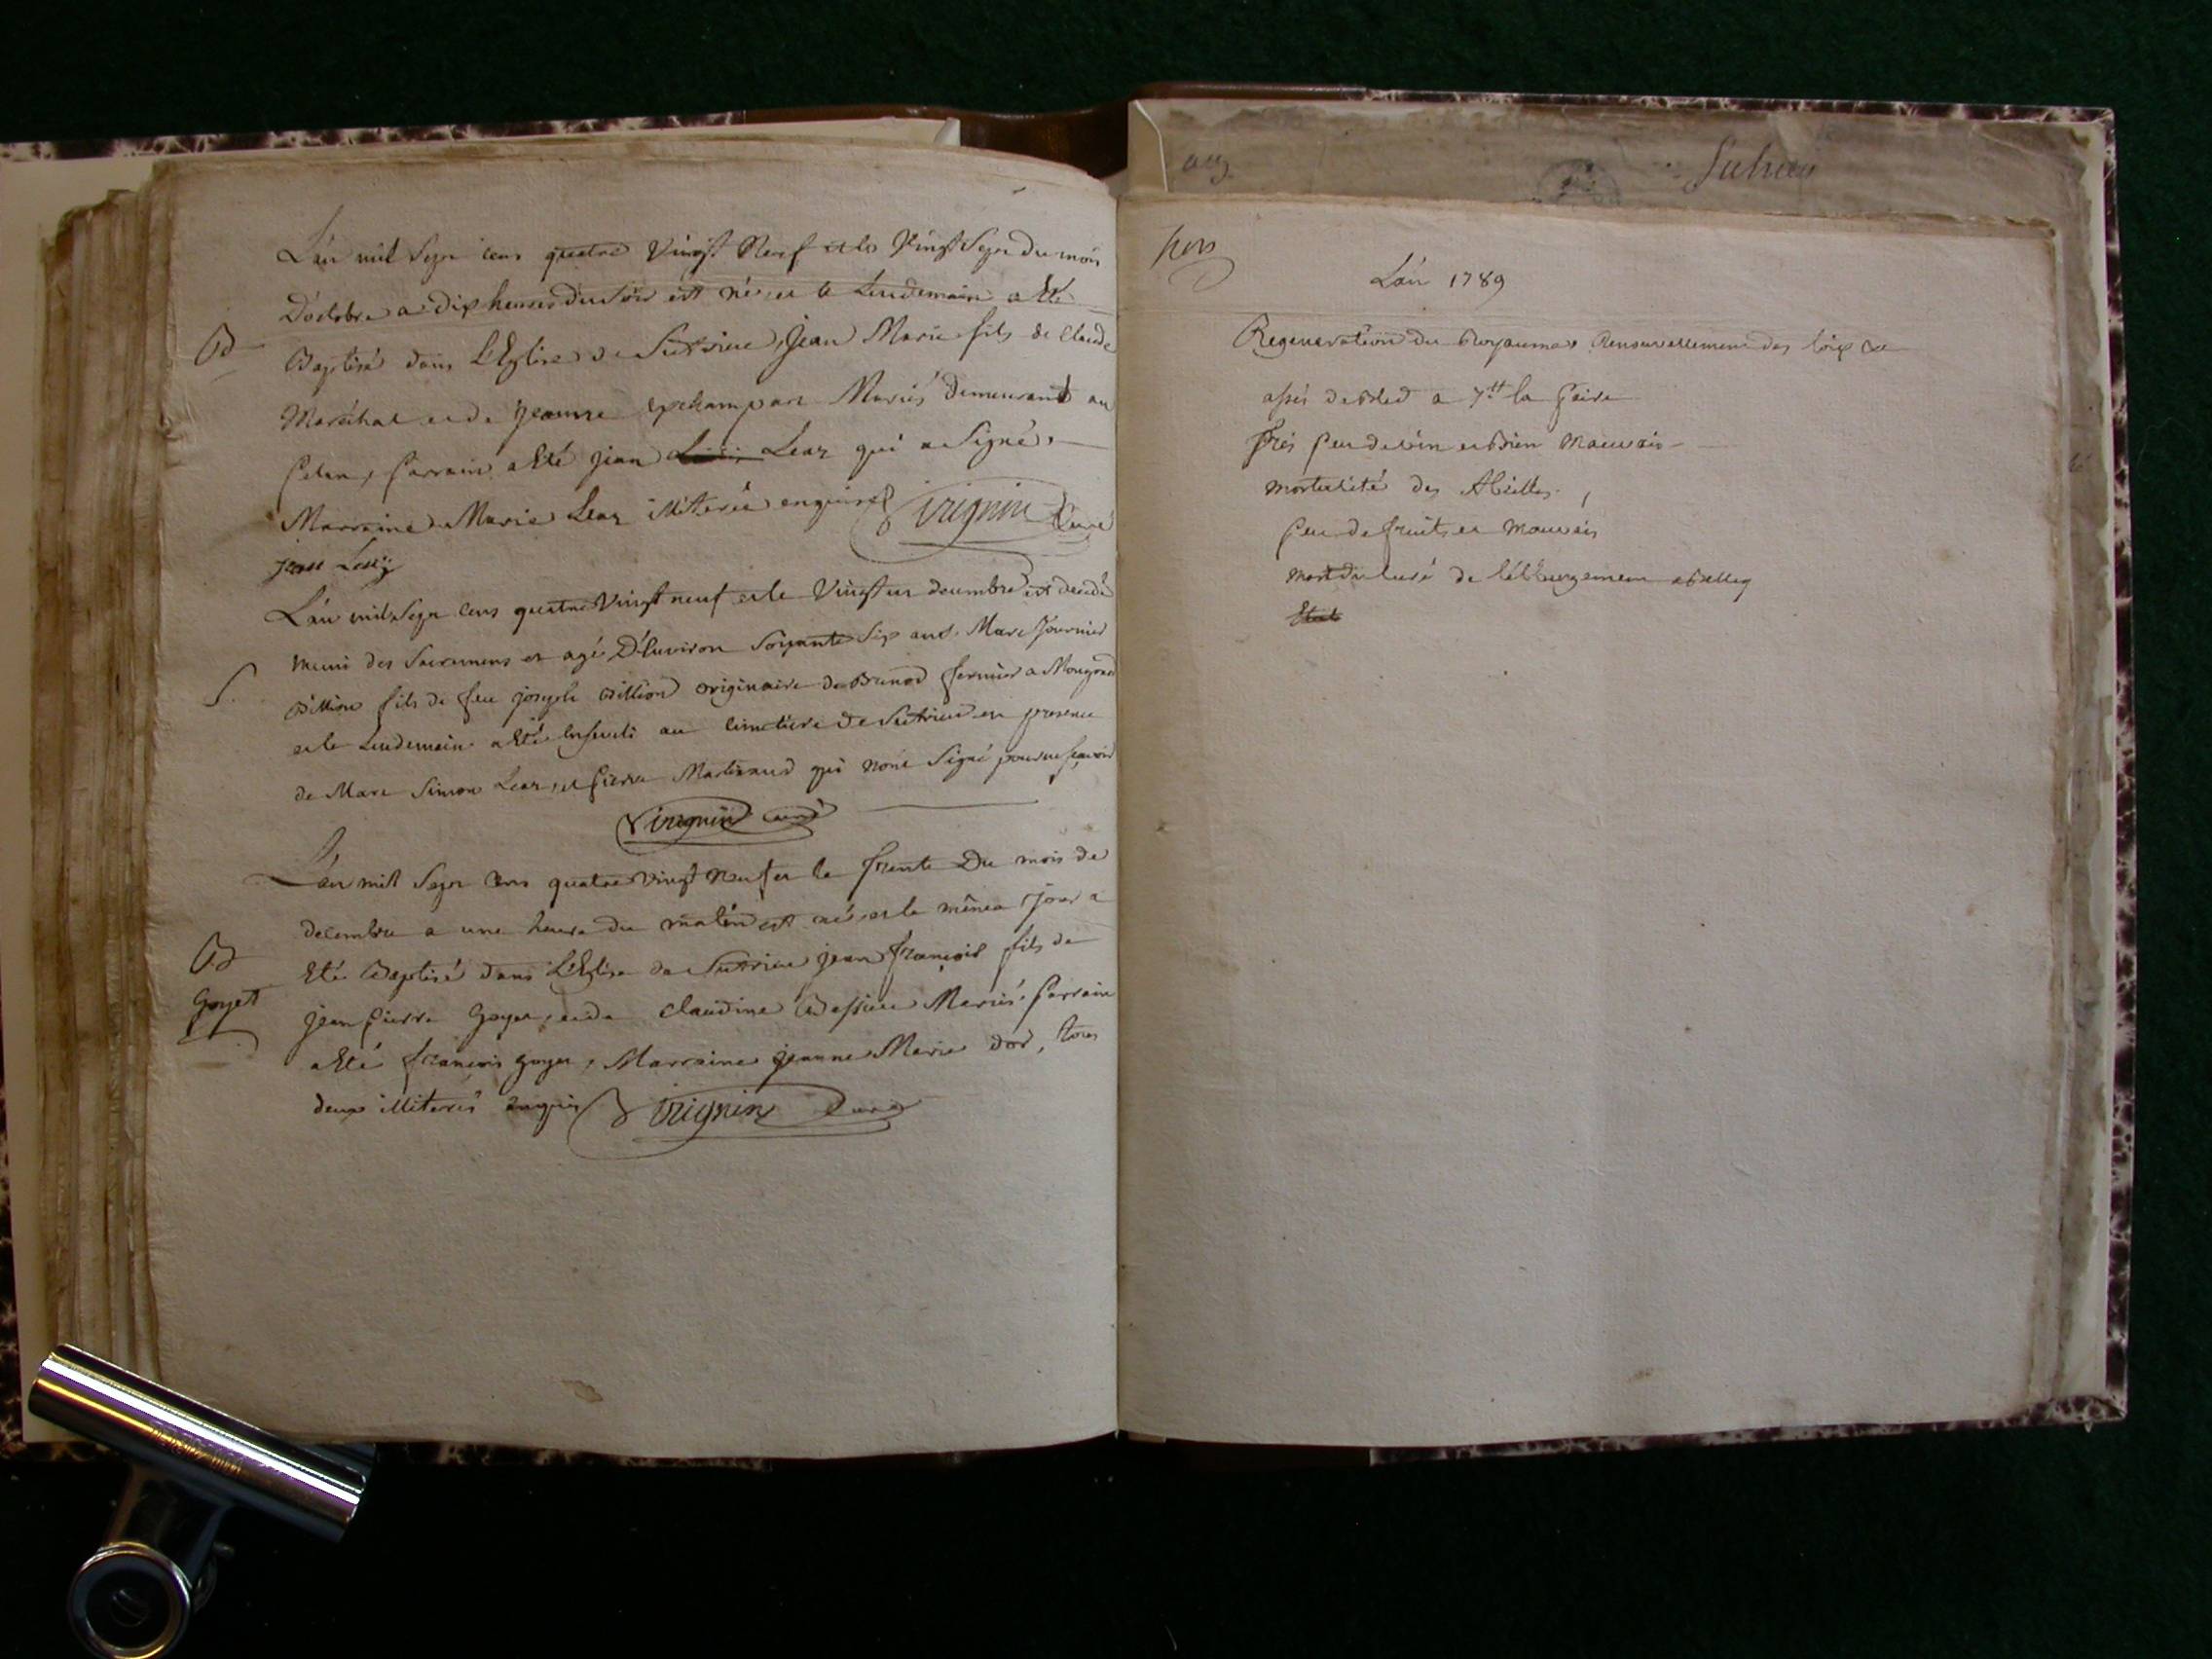 L'an mil Sept cens quatre Vingt Neuf et le Vingt Sept du mois
D'octobre a dix heures du Soir est né, et le Lendemain a Eté
B
Baptisé dans L'Eglise de Sutrieu, Jean Marie fils de Claude
Maréchal et de jeanne Mariés demeurant au
parrain a Eté jean Leaz qui a Signé,
Marraine Marie Leaz illiterée enquise Virignin Curé
jean
L'an mil Sept cens quatre Vingt neuf et le Vingt un decembre est decedé
muni des Sacremens et agé D'Environ Soixante Six ans, Marc
S.
Billion fils de feu joseph Billion originaire de Brenod fermier a
et le Lendemain a Eté Enseveli au cimetiere de Sutrieu en presence
de Marc Simon Leaz, et pierre Martinand qui n'ont Signé pour ne sçavoir
Virignin curé
L'an mil Sept Cens quatre vingt Neuf et le trente Du mois de
decembre a une heure du matin est né, et le même jour a
B
Eté Baptisé dans L'Eglise de Sutrieu jean françois fils de
Goyet
jean pierre Goyet, et de claudine Bessieu Mariés. parrain
a Eté françois goyet, Marraine jeanne Marie dor, tous
deux illiterés enquis Virignin Curé
Sutrieu
L'an 1789
Regeneration du Royaume, Renouvellement des loix &c
assés de Bled a 7tt la paire
très peu de vin et bien mauvais
mortalité des Abeilles,
peu de fruits et mauvais
mort du curé de